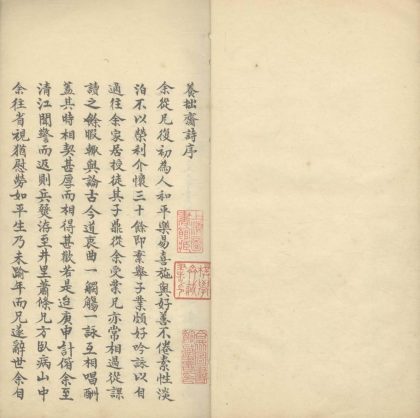 養拙齋詩序
余從兄復初為人和平樂易喜施與好善不倦素性淡
泊不以榮利介懷三十餘即棄舉子業頗好吟詠以自
適往余家居授徒其子鼎從余受業兄亦常相過從課
讀之餘暇輒與論古今道衷曲一觴一詠互相唱酬
蓋其時相契甚厚而相得甚歡若是迨庚申計偕余至
清江聞警而返則兵燹洊至井里蕭條兄方臥病山中
余往省視猶慰勞如平生乃未踰年而兄遂辭世余自
上海圖
書館藏